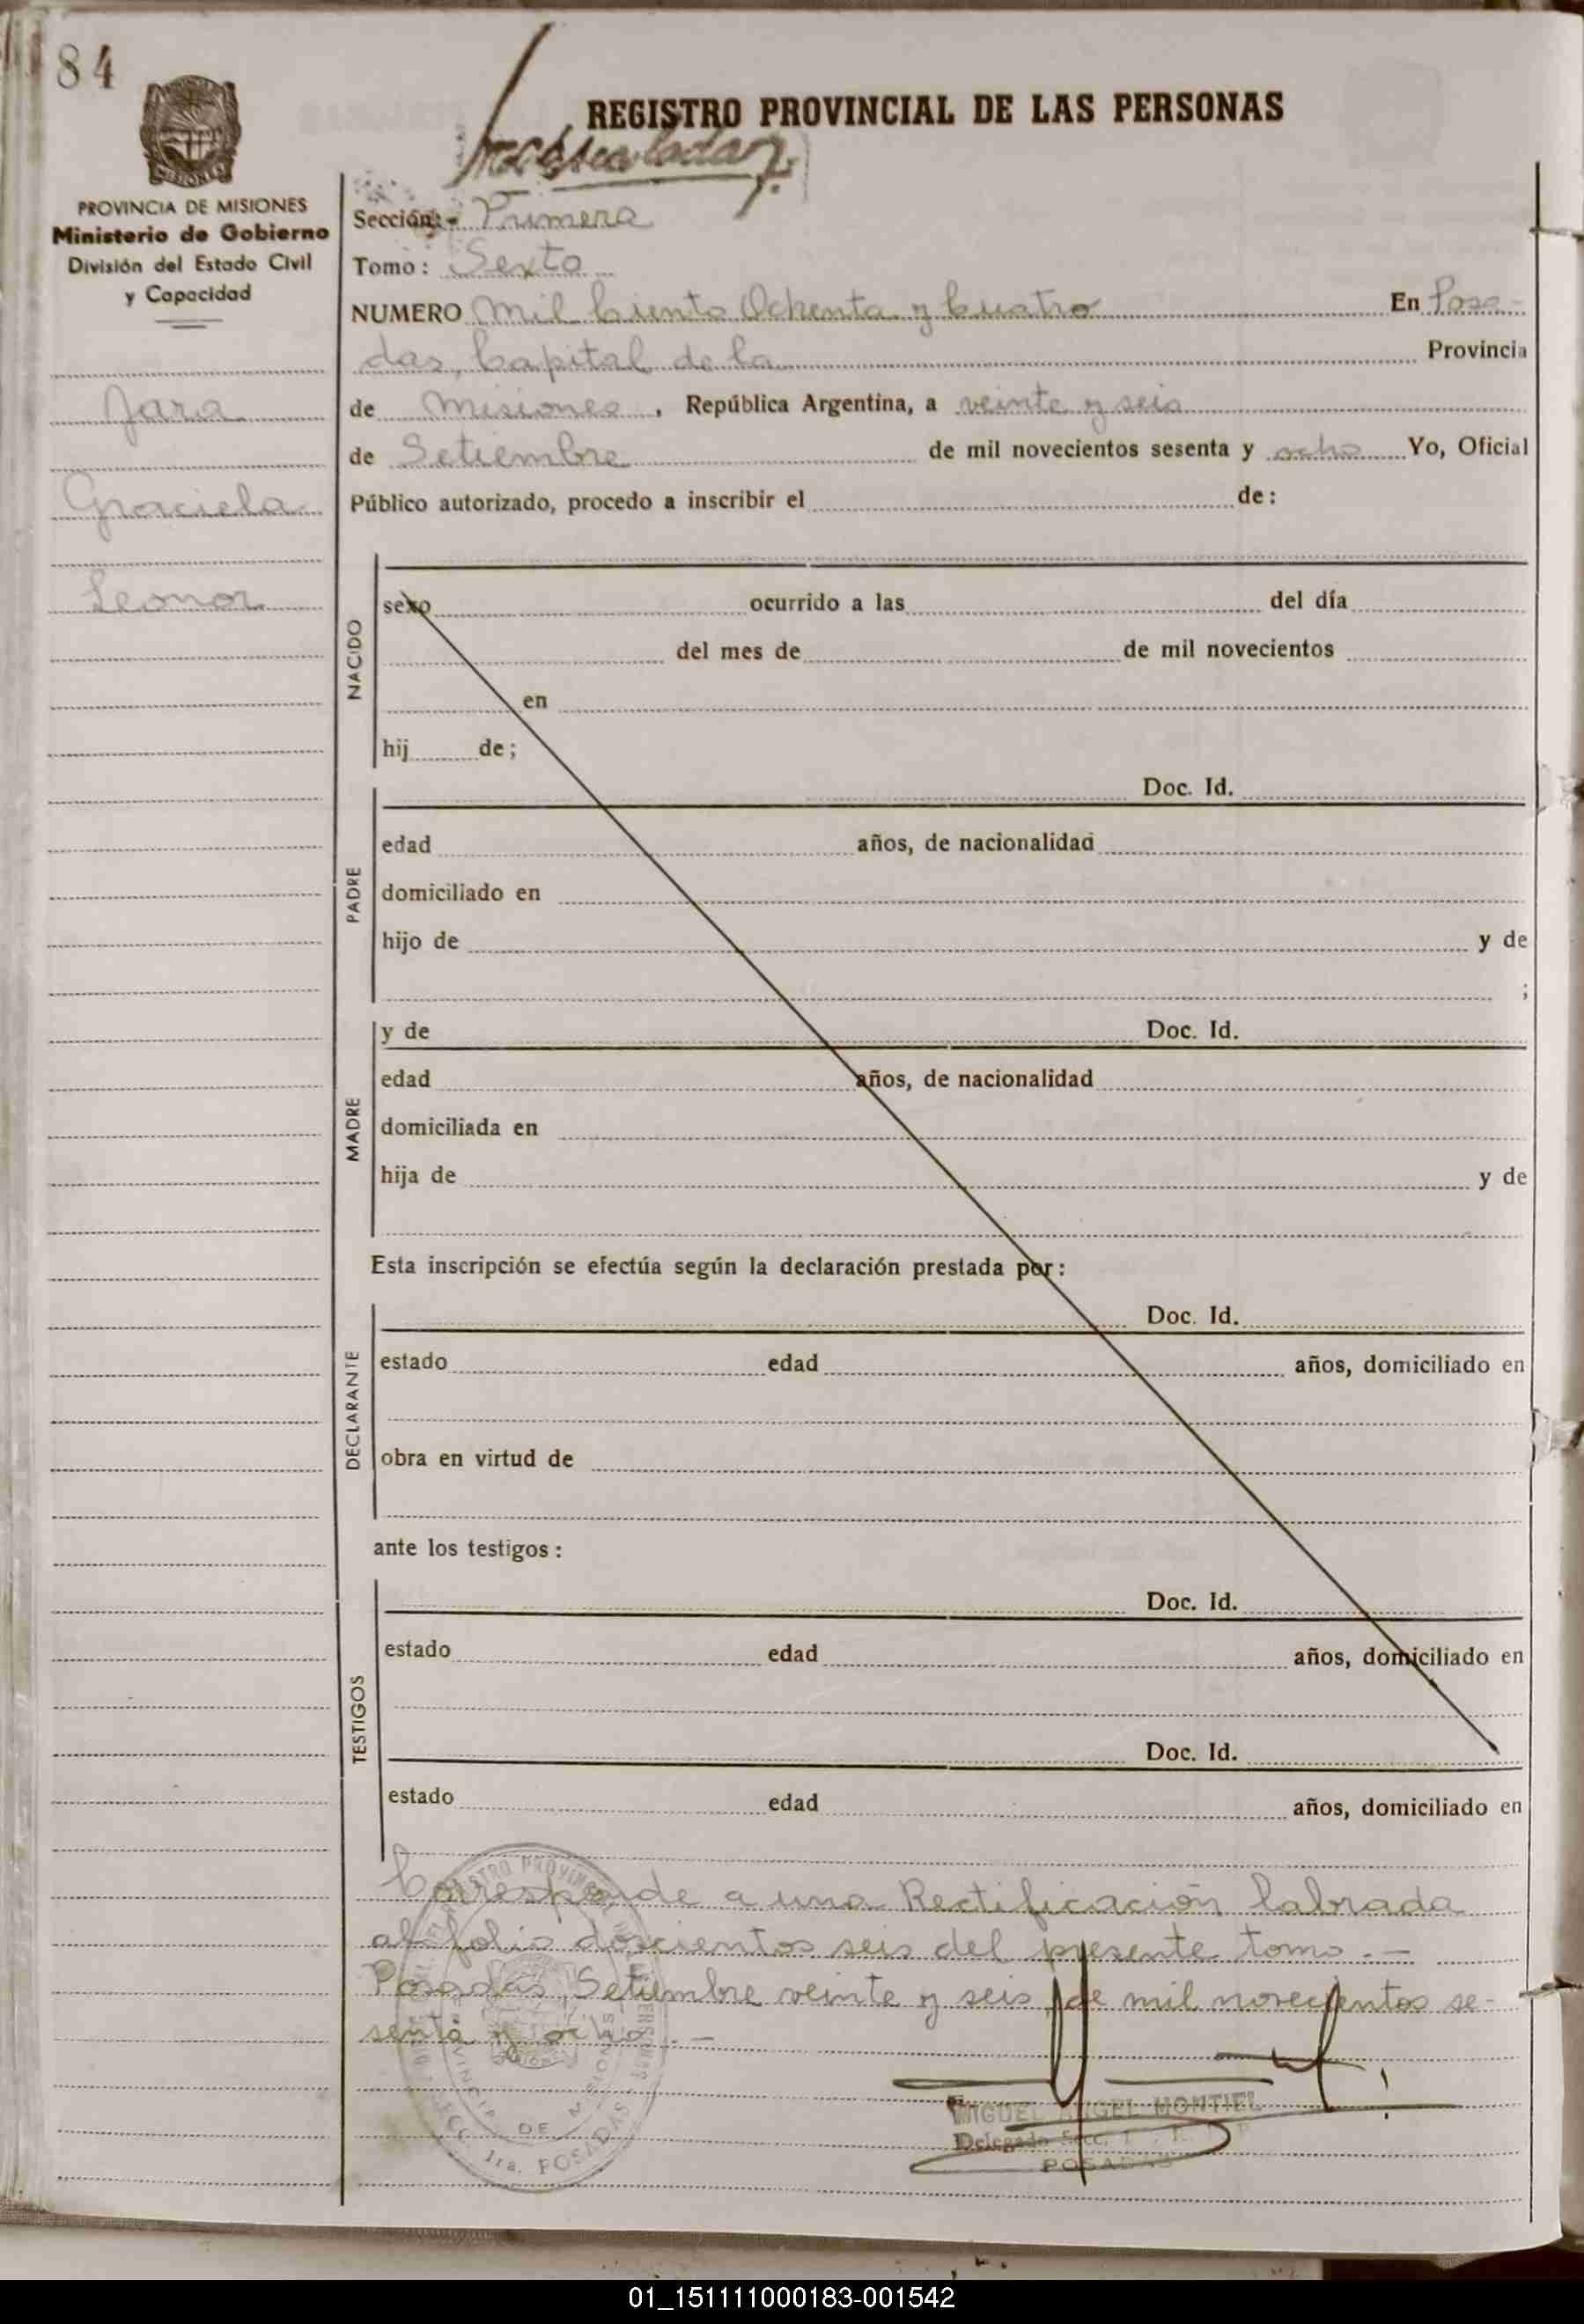 84
REGISTRO PROVINCIAL DE LAS PERSONAS
PROVINCIA DE MISIONES
Ministerio de Gobierno
División del Estado Civil
y Capacidad
Jara
Graciela
Leonor
Sección:- Primera
Tomo: Sexto
NUMERO Mil Ciento Ochenta y Cuatro En Posa-
das, Capital de la Provincia
de Misiones, República Argentina, a veinte y seis
de Setiembre de mil novecientos sesenta y ocho Yo, Oficial
Público autorizado, procedo a inscribir el de:
NACIDO
sexo ocurrido a las del día
del mes de de mil novecientos
en
hij de;
PADRE
Doc. Id.
edad años, de nacionalidad
domiciliado en
hijo de y de
;
MADRE
y de Doc. Id.
edad años, de nacionalidad
domiciliada en
hija de y de
Esta inscripción se efectúa según la declaración prestada por:
DECLARANTE
Doc. Id.
estado edad años, domiciliado en
obra en virtud de
ante los testigos:
TESTIGOS
Doc. Id.
estado edad años, domiciliado en
Doc. Id.
estado edad años, domiciliado en
Corresponde a una Rectificación labrada
al folio doscientos seis del presente tomo.-
Posadas, Setiembre veinte y seis de mil novecientos se-
senta y ocho.-
MIGUEL ANGEL MONTIEL
Delegado Secc.
POSADAS
PROVINCIA DE MISIONES
1ra. POSADAS
01_151111000183-001542